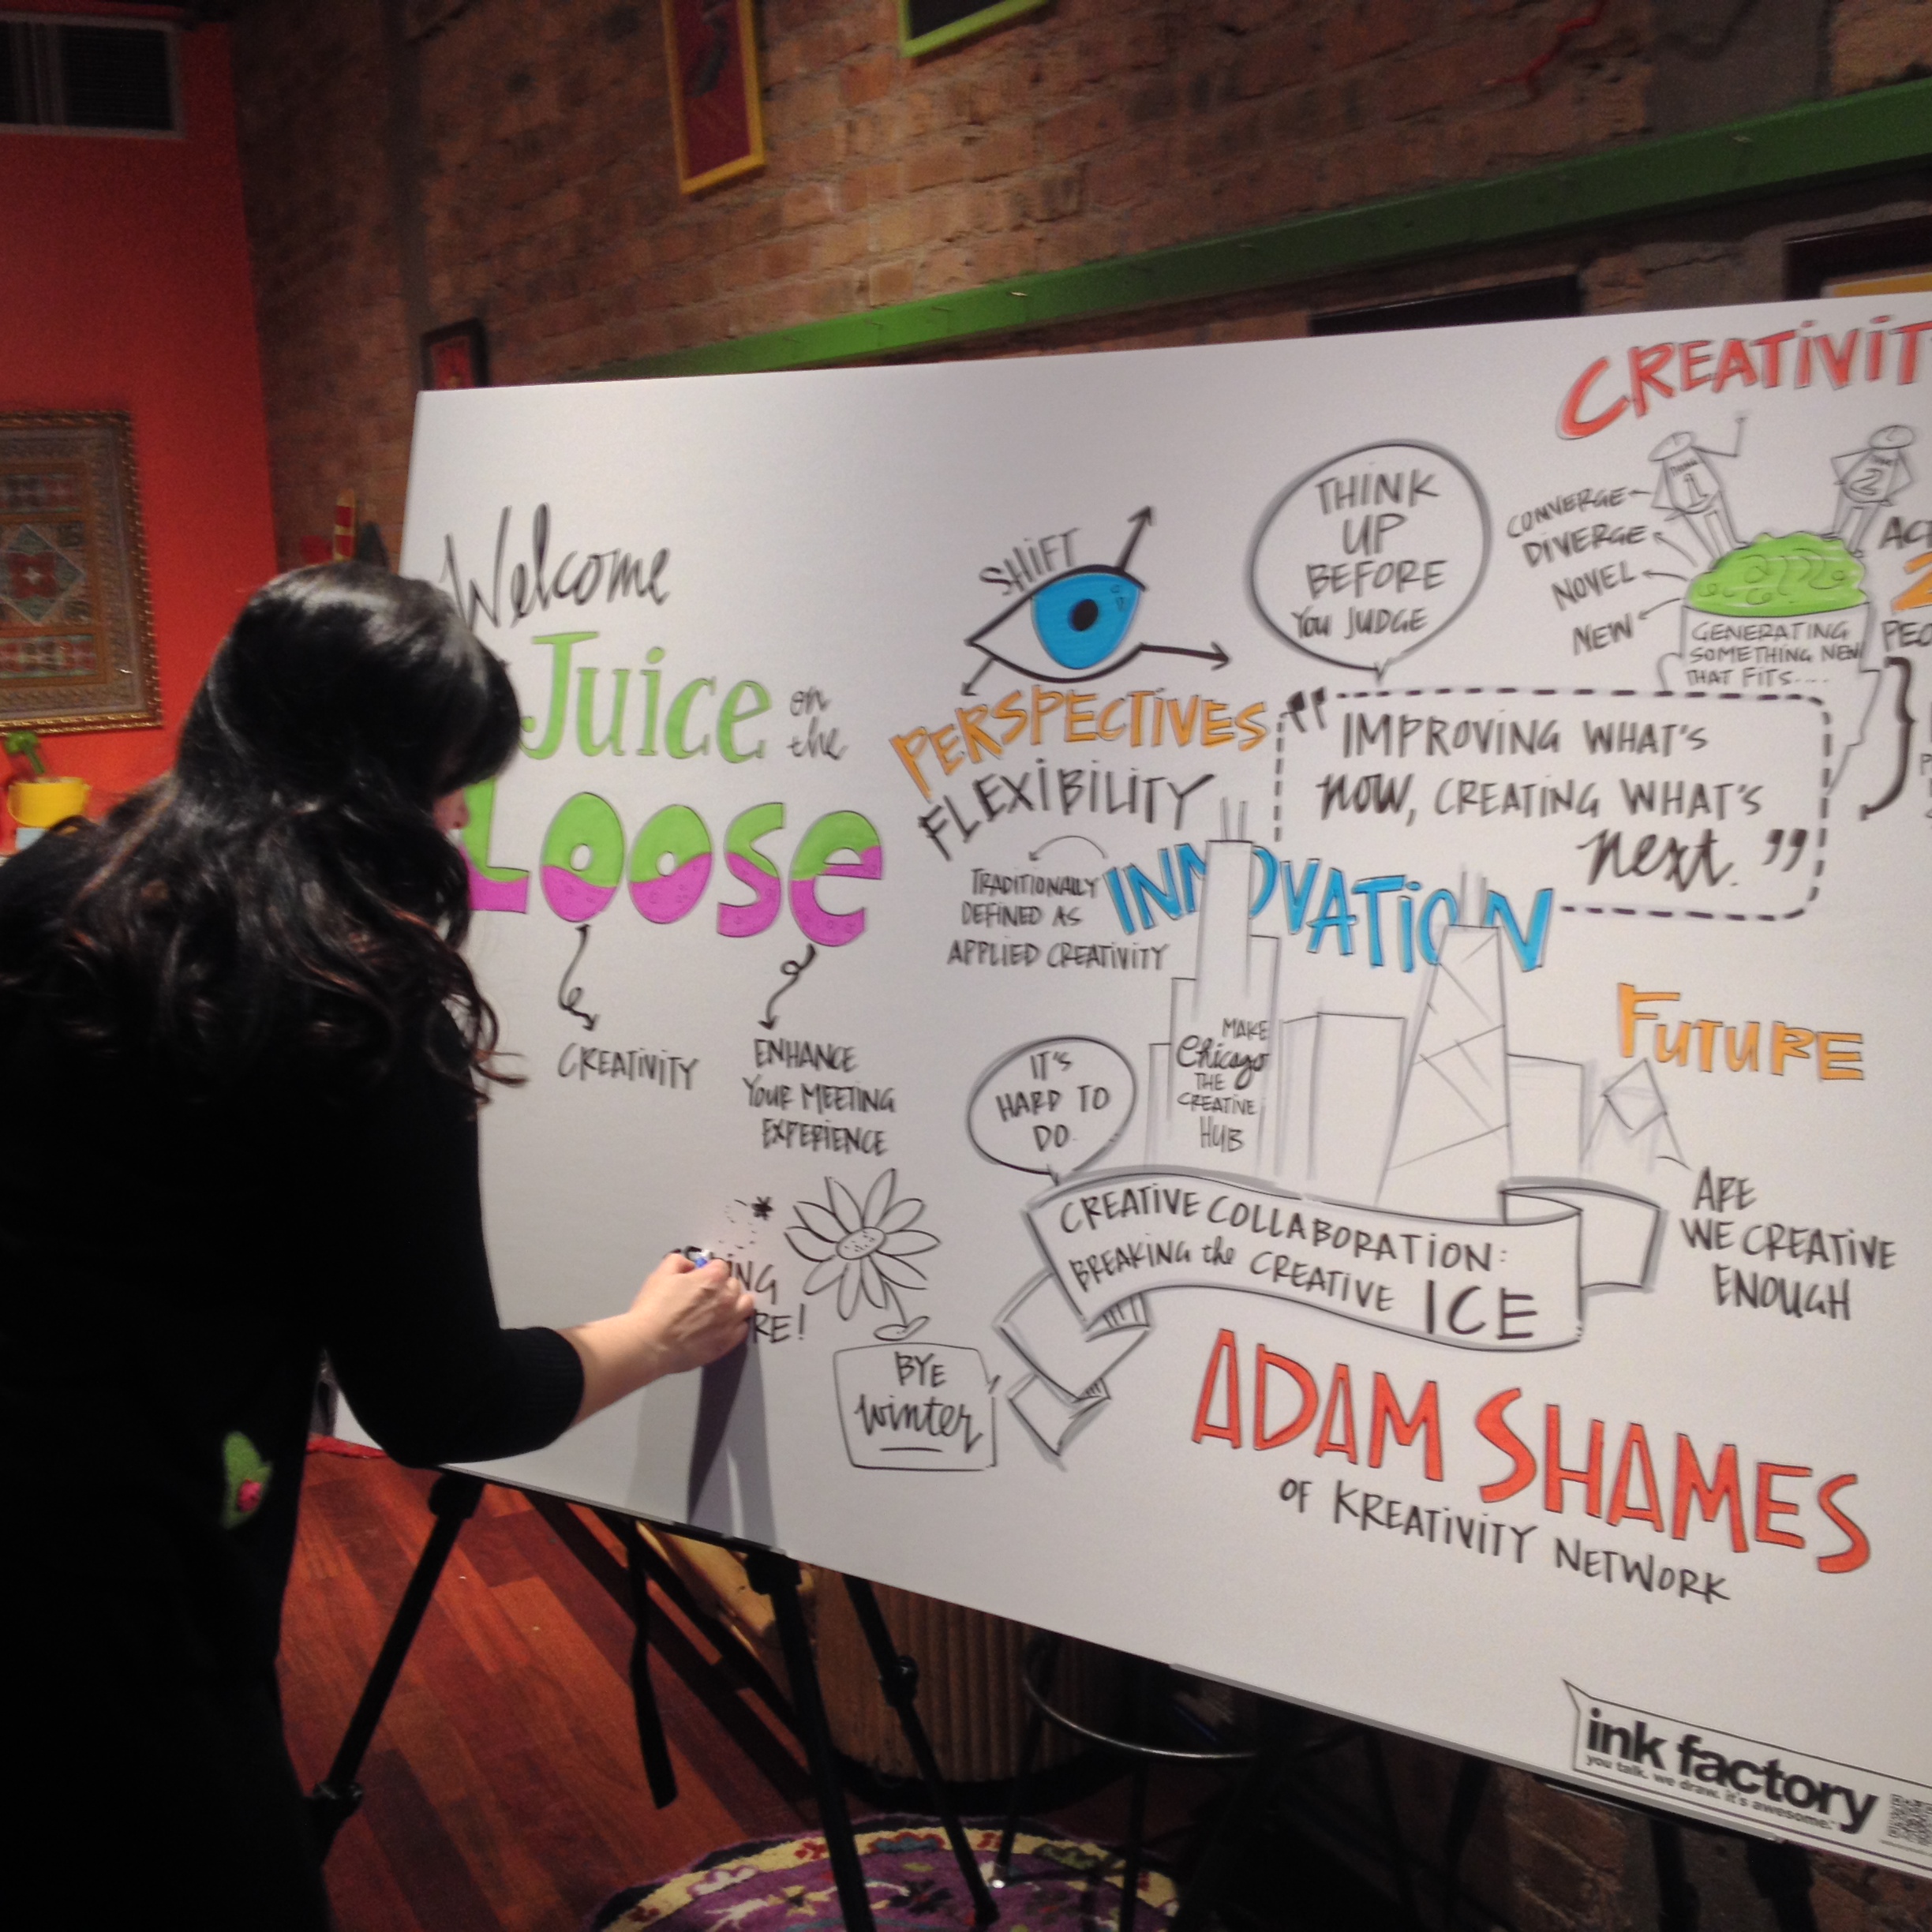 Welcome
Juice on
the
Loose
CREATIVITY
ENHANCE
YOUR MEETING
EXPERIENCE
BYE
winter
SHIFT
PERSPECTIVES
FLEXIBILITY
TRADITIONALLY
DEFINED AS
APPLIED CREATIVITY
INNOVATION
THINK
UP
BEFORE
YOU JUDGE
"IMPROVING WHAT'S
NOW, CREATING WHAT'S
next."
CONVERGE
DIVERGE
NOVEL
NEW
1
2
GENERATING
SOMETHING NEW
THAT FITS....
IT'S
HARD TO
DO.
MAKE
Chicago
THE
CREATIVE
HUB
FUTURE
ARE
WE CREATIVE
ENOUGH
CREATIVE COLLABORATION:
BREAKING the CREATIVE ICE
ADAM SHAMES
OF KREATIVITY NETWORK
ink factory
you talk. we draw. it's awesome.